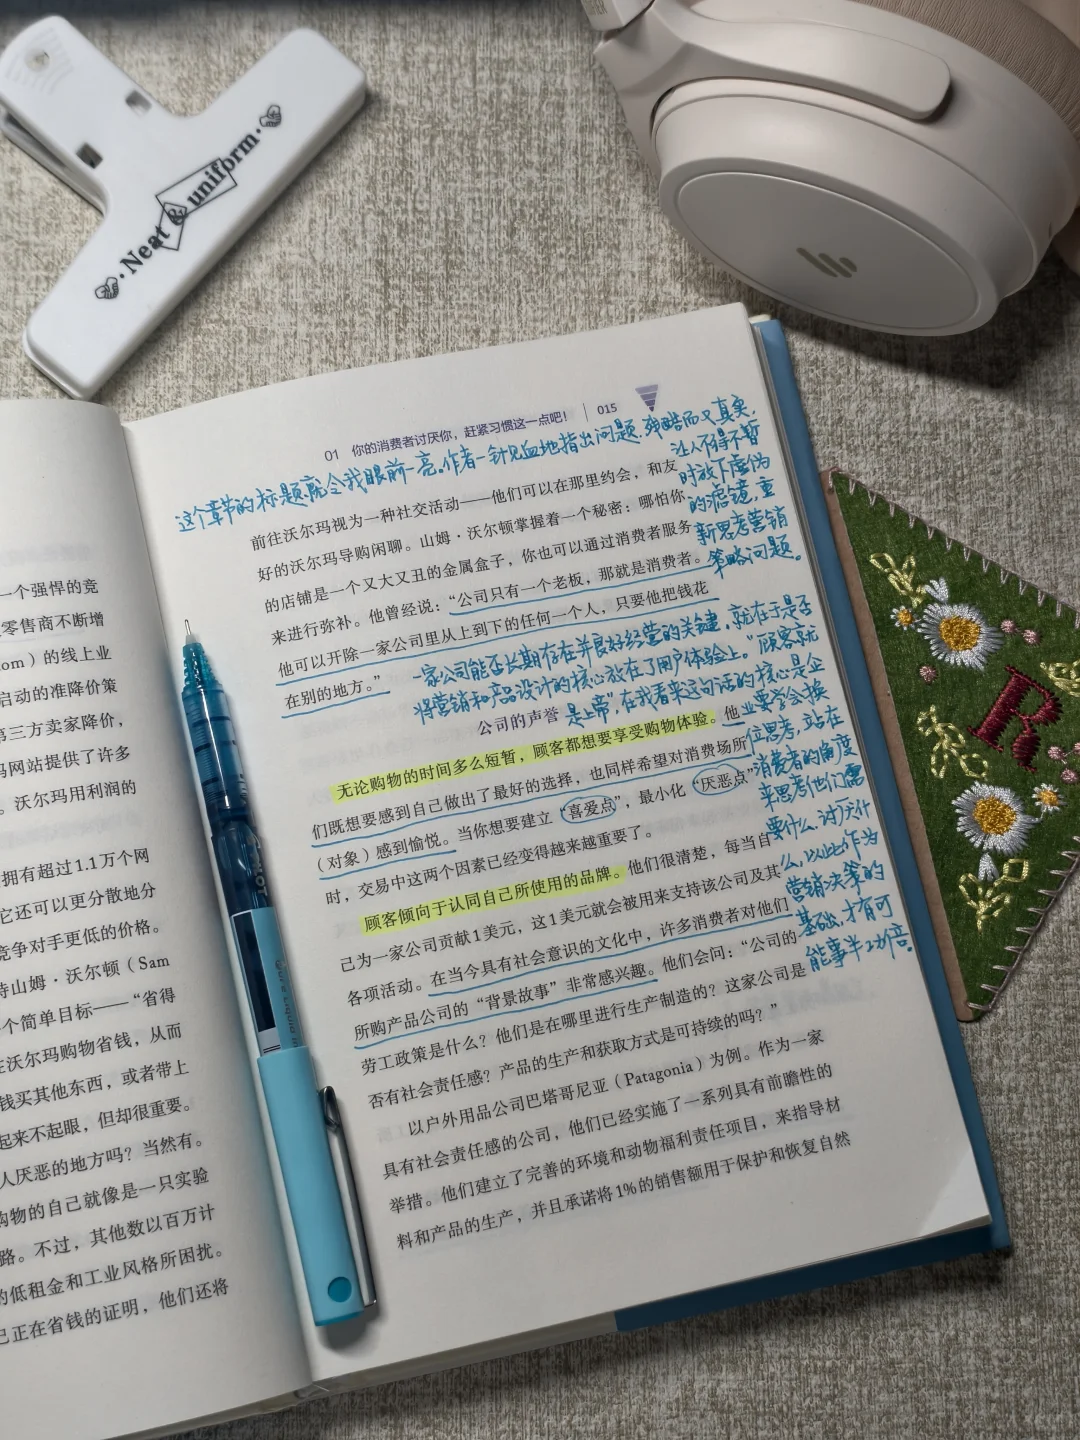 ·Neat & uniform·
一个强悍的竞
零售商不断增
om）的线上业
启动的准降价策
第三方卖家降价，
玛网站提供了许多
。沃尔玛用利润的
拥有超过1.1万个网
它还可以更分散地分
竞争对手更低的价格。
持山姆·沃尔顿（Sam
个简单目标——“省得
在沃尔玛购物省钱，从而
钱买其他东西，或者带上
起来不起眼，但却很重要。
人厌恶的地方吗？当然有。
购物的自己就像是一只实验
路。不过，其他数以百万计
的低租金和工业风格所困扰。
己正在省钱的证明，他们还将
01 你的消费者讨厌你，赶紧习惯这一点吧！ 015
这个章节的标题就令我眼前一亮。作者一针见血地指出问题。残酷而又真实，
让人不得不暂
时放下虚伪
的滤镜，重
新思考营销
策略问题。
前往沃尔玛视为一种社交活动——他们可以在那里约会，和友
好的沃尔玛导购闲聊。山姆·沃尔顿掌握着一个秘密：哪怕你
的店铺是一个又大又丑的金属盒子，你也可以通过消费者服务
来进行弥补。他曾经说：“公司只有一个老板，那就是消费者。
他可以开除一家公司里从上到下的任何一个人，只要他把钱花
在别的地方。”
一家公司能否长期存在并良好经营的关键，就在于是否
将营销和产品设计的核心放在了用户体验上。“顾客就
是上帝”在我看来这句话的核心是企
业要学会换
位思考，站在
消费者的角度
来思考他们需
要什么，讨厌什
么，以此作为
营销决策的
基础，才有可
能事半功倍。
公司的声誉
无论购物的时间多么短暂，顾客都想要享受购物体验。他
们既想要感到自己做出了最好的选择，也同样希望对消费场所
（对象）感到愉悦。当你想要建立“喜爱点”，最小化“厌恶点”
时，交易中这两个因素已经变得越来越重要了。
顾客倾向于认同自己所使用的品牌。他们很清楚，每当自
己为一家公司贡献1美元，这1美元就会被用来支持该公司及其
各项活动。在当今具有社会意识的文化中，许多消费者对他们
所购产品公司的“背景故事”非常感兴趣。他们会问：“公司的
劳工政策是什么？他们是在哪里进行生产制造的？这家公司是
否有社会责任感？产品的生产和获取方式是可持续的吗？”
以户外用品公司巴塔哥尼亚（Patagonia）为例。作为一家
具有社会责任感的公司，他们已经实施了一系列具有前瞻性的
举措。他们建立了完善的环境和动物福利责任项目，来指导材
料和产品的生产，并且承诺将1%的销售额用于保护和恢复自然
R